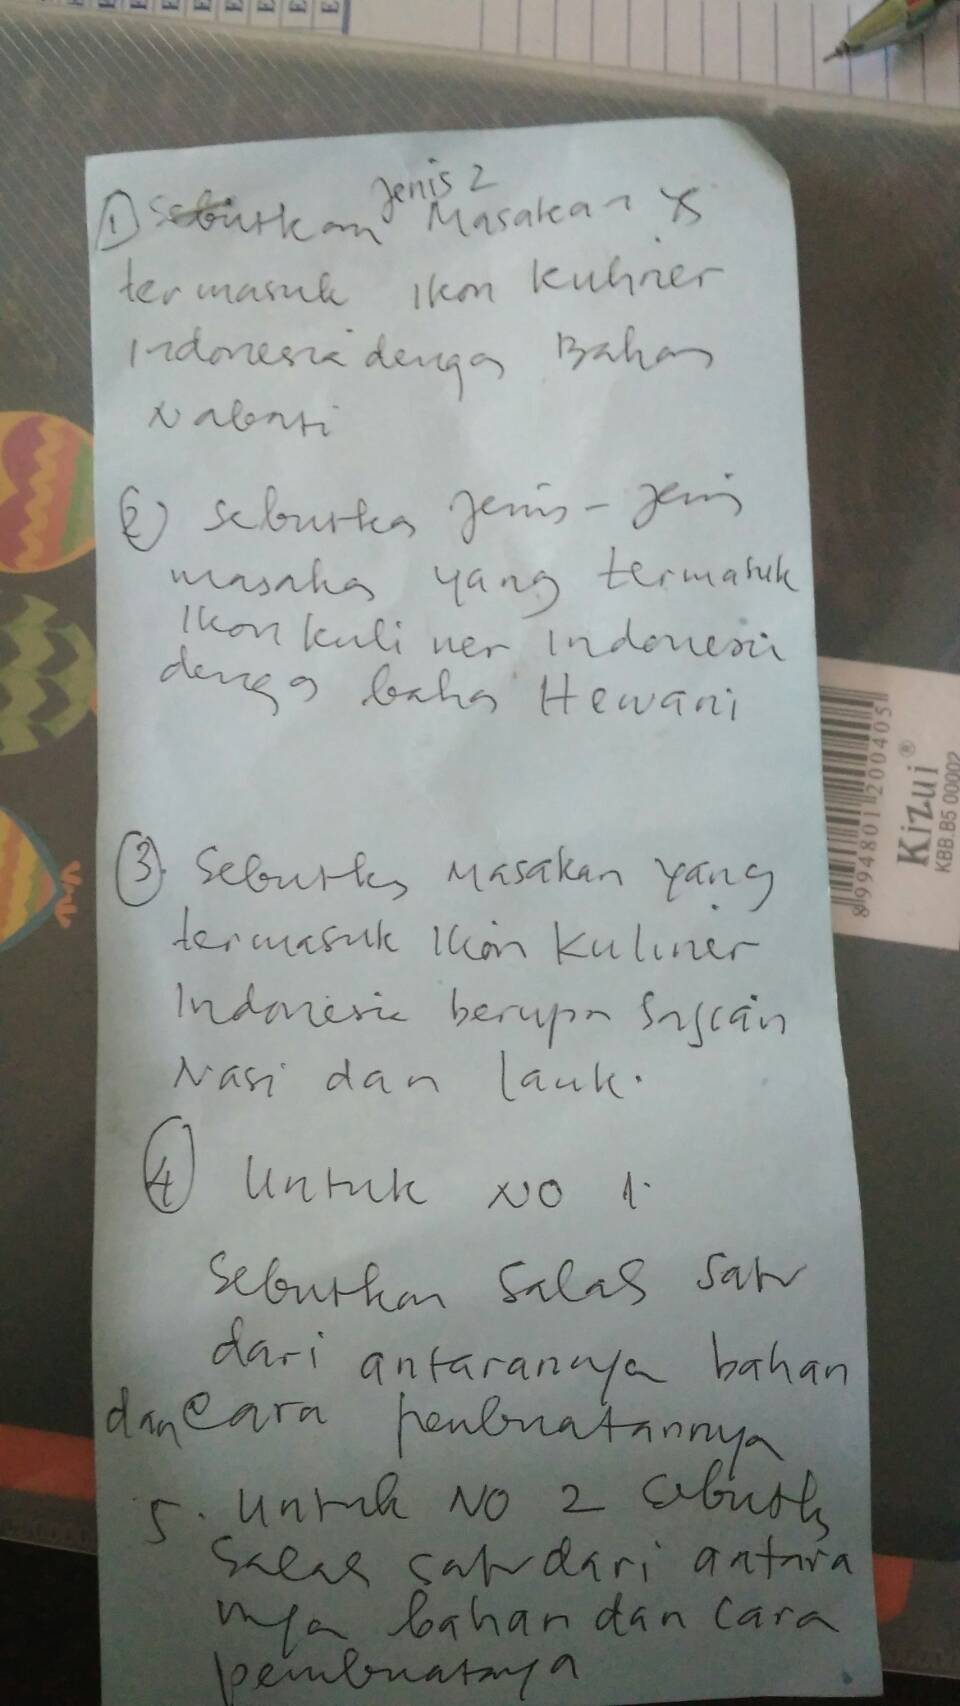 E E E E E E E
jenis 2
① Sebutkan Masakan yg
termasuk Ikon Kuliner
Indonesia dengan Bahan
Nabati
② Sebutkan Jenis-jenis
masakan yang termasuk
Ikon kuliner Indonesia
dengan bahan Hewani
③. Sebutkan Masakan yang
termasuk Ikon Kuliner
Indonesia berupa Sajian
Nasi dan lauk.
④ Untuk NO 1.
Sebutkan Salah Satu
dari antarannya bahan
dan Cara penbuatannya
5. Untuk NO 2 Sebutkan
Salah satu dari antara
nya bahan dan Cara
pembuatnya
8 994801 200405
Kizui®
KBB.B5 00002